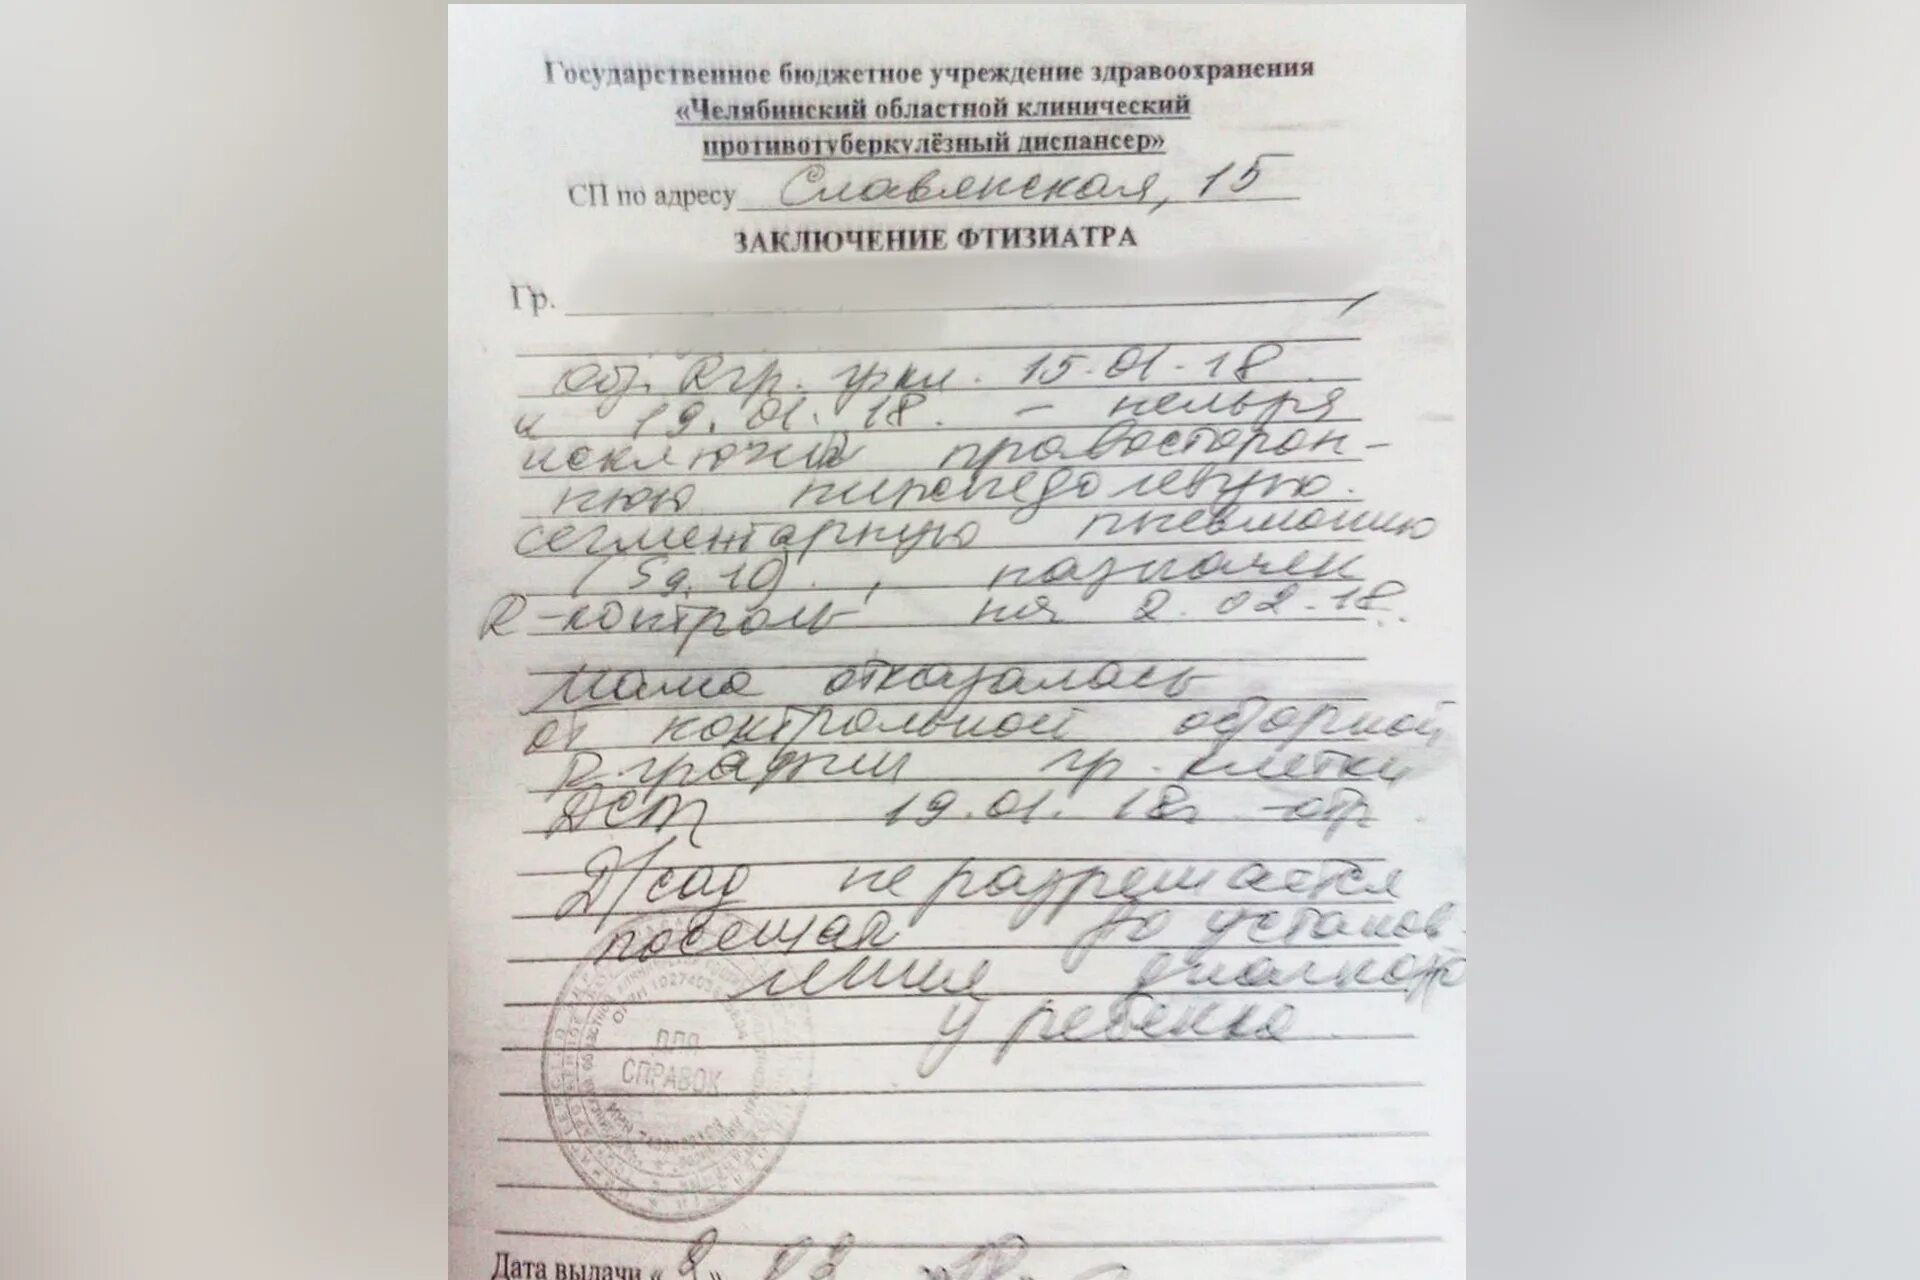 Государственное бюджетное учреждение здравоохранения
«Челябинский областной клинический
противотуберкулёзный диспансер»
СП по адресу Славянская, 15
ЗАКЛЮЧЕНИЕ ФТИЗИАТРА
Гр.
15.01.18
и 19.01.18. - нельзя
исключить правосторон-
нюю
сегментарную пневмонию
(Sg.10), назначен
R-контроль на 2.02.18.
Мама отказалась
от контрольной обзорной
R-графии гр. клетки
ДСТ 19.01.18г - отр
Д/сад не разрешается
посещать до установ-
ления диагноза
у ребенка
ДЛЯ
СПРАВОК
Дата выдачи «2»